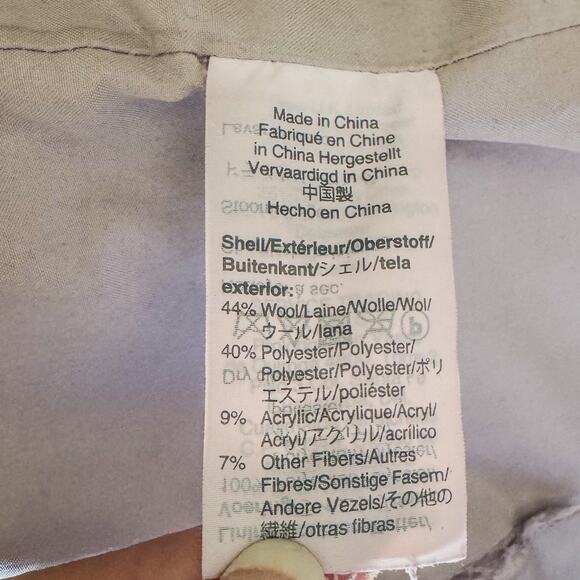 Made in China
Fabriqué en Chine
in China Hergestellt
Vervaardigd in China
中国製
Hecho en China
Shell/Extérieur/Oberstoff/
Buitenkant/シェル/tela
exterior:
44% Wool/Laine/Wolle/Wol/
ウール/lana
40% Polyester/Polyester/
Polyester/Polyester/ポリ
エステル/poliéster
9% Acrylic/Acrylique/Acryl/
Acryl/アクリル/acrílico
7% Other Fibers/Autres
Fibres/Sonstige Fasern/
Andere Vezels/その他の
繊維/otras fibras